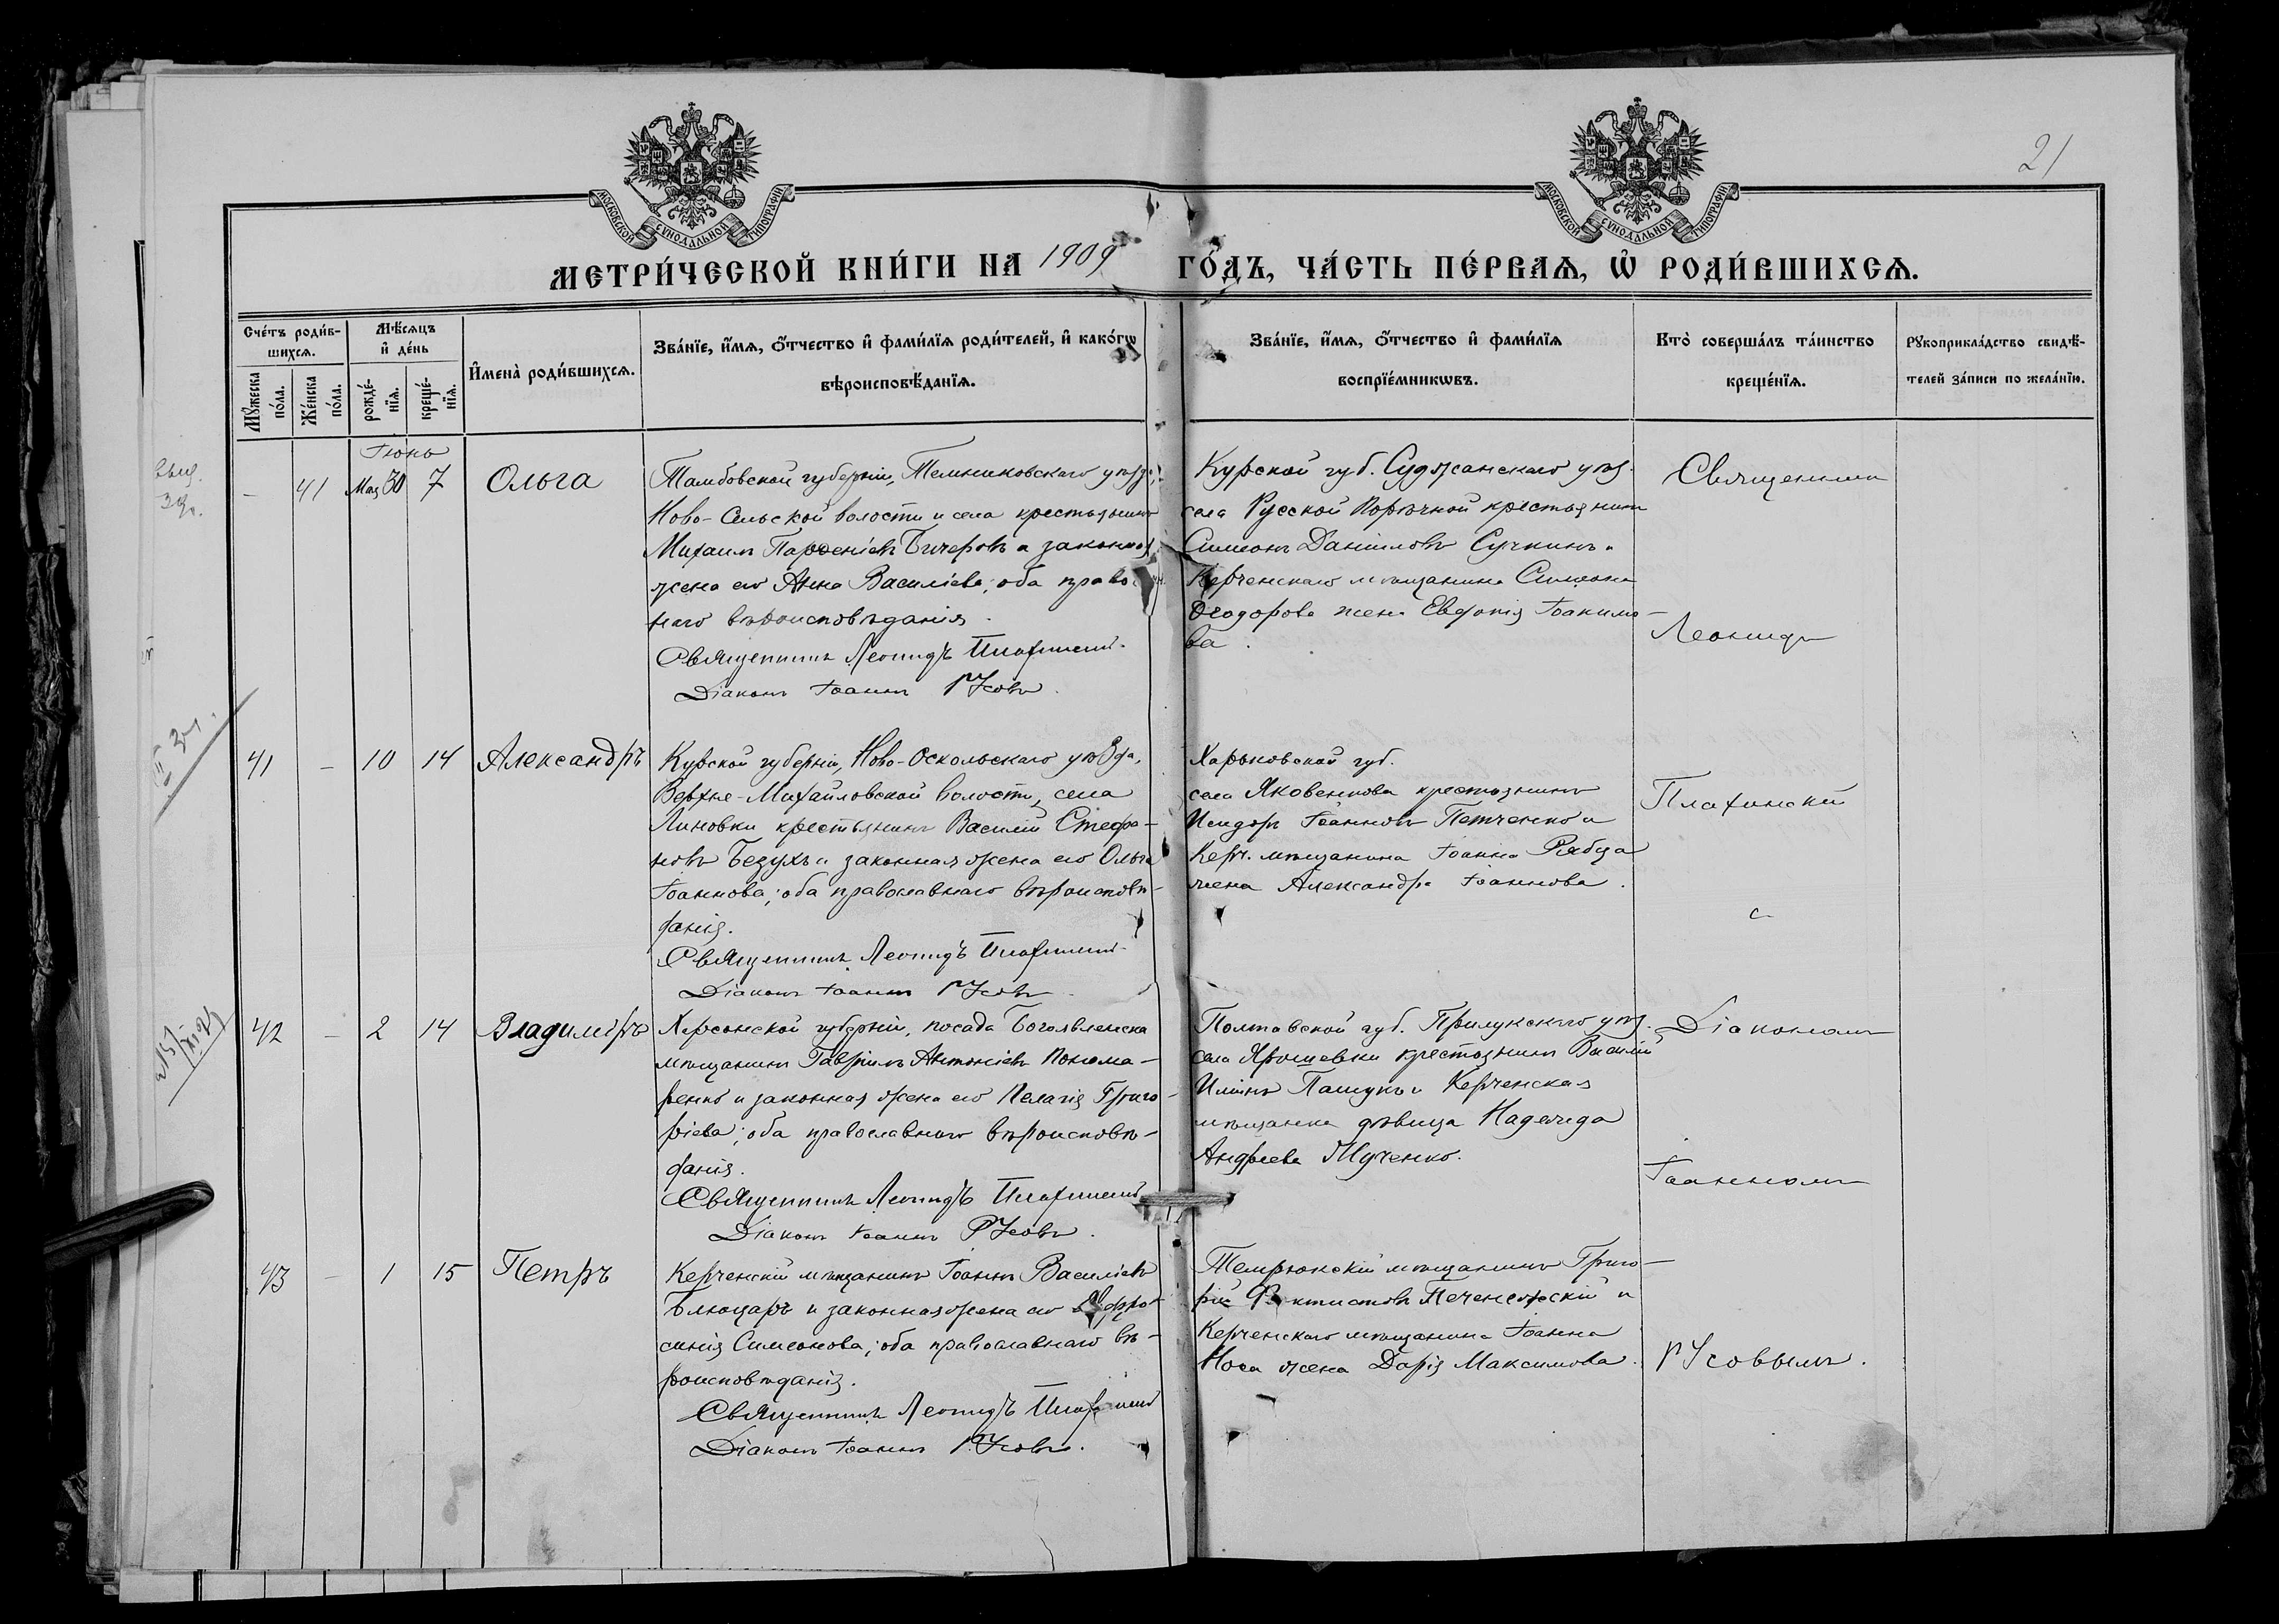 21
МОСКОВСКОЙ СѴНОДАЛЬНОЙ ТИПОГРАФІИ
МОСКОВСКОЙ СѴНОДАЛЬНОЙ ТИПОГРАФІИ
МЕТРИ́ЧЕСКОЙ КНИ́ГИ НА 1909 ГО́ДЪ, ЧА́СТЬ ПЕ́РВАѦ, Ѡ҆ РОДИ́ВШИХСѦ.
Сче́тъ роди́в-
шихсѧ.
Мꙋ́жеска
по́ла.
Же́нска
по́ла.
Мѣ́сѧцъ
и҆ де́нь
рожде́-
нїѧ.
креще́-
нїѧ.
И҆мена̀ роди́вшихсѧ.
Зва́нїе, и҆́мѧ, ѻ҆́тчество и҆ фами́лїѧ роди́телей, и҆ како́гѡ
вѣроисповѣ́данїѧ.
Зва́нїе, и҆́мѧ, ѻ҆́тчество и҆ фами́лїѧ
воспрїе́мникѡвъ.
Кто̀ соверша́лъ та́инство
креще́нїѧ.
Рꙋкоприкла́дство свидѣ́-
телей за́писи по жела́нїю.
Іюнь
- 41 Мая 30 7 Ольга
Тамбовской губерніи, Темниковскаго уѣзда,
Ново-Сельской волости и села крестьянинъ
Михаилъ Парѳеніевъ Бичеровъ и законная
жена его Анна Василіева; оба право
наго вѣроисповѣданія.
Священникъ Леонидъ Плахинскій.
Діаконъ Іоаннъ Русовъ.
Курской губ. Суджанскаго уѣз.
села Русской Порѣчной крестьянинъ
Симеонъ Даніиловъ Сучкинъ и
Керченскаго мѣщанина Симеона
Ѳеодорова жена Евдокія Іоакимо-
ва.
Священникъ
Леонидъ
41 - 10 14 Александръ
Курской губерніи, Ново-Оскольскаго уѣзда,
Верхне-Михайловской волости, села
Линовки крестьянинъ Василій Стефа-
новъ Безухъ и законная жена его Ольга
Іоаннова; оба православнаго вѣроисповѣ-
данія.
Священникъ Леонидъ Плахинскій
Діаконъ Іоаннъ Русовъ.
Харьковской губ.
села Яковенкова крестьянинъ
Исидоръ Іоанновъ Петченко и
Керч. мѣщанина Іоанна Рябца
жена Александра Іоаннова.
Плахинскій
с
42 - 2 14 Владиміръ
Херсонской губерніи, посада Богоявленска
мѣщанинъ Гавріилъ Антоніевъ Понома-
ренко и законная жена его Пелагія Григо-
ріева; оба православнаго вѣроисповѣ-
данія.
Священникъ Леонидъ Плахинскій
Діаконъ Іоаннъ Русовъ.
Полтавской губ. Прилукскаго уѣз.
села Ярошевки крестьянинъ Василій
Иліинъ Пащукъ и Керченская
мѣщанка дѣвица Надежда
Андреева
Діакономъ
Іоанномъ
43 - 1 15 Петръ
Керченскій мѣщанинъ Іоаннъ Василіевъ
Блюцаръ и законная жена его Евфро-
синія Симеонова; оба православнаго вѣ-
роисповѣданія.
Священникъ Леонидъ Плахинскій
Діаконъ Іоаннъ Русовъ.
Темрюкскій мѣщанинъ Григо-
рій Ѳеоктистовъ и
Керченскаго мѣщанина Іоанна
Носа жена Дарія Максимова.
Русовымъ.